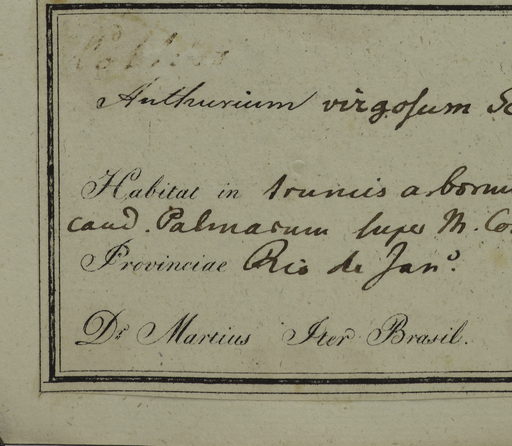 Anthurium virgosum Sc
Habitat in truncis arboru
caud. Palmarum super M. Co
Provinciae Rio de Jan.º
Dr. Martius Iter Brasil.